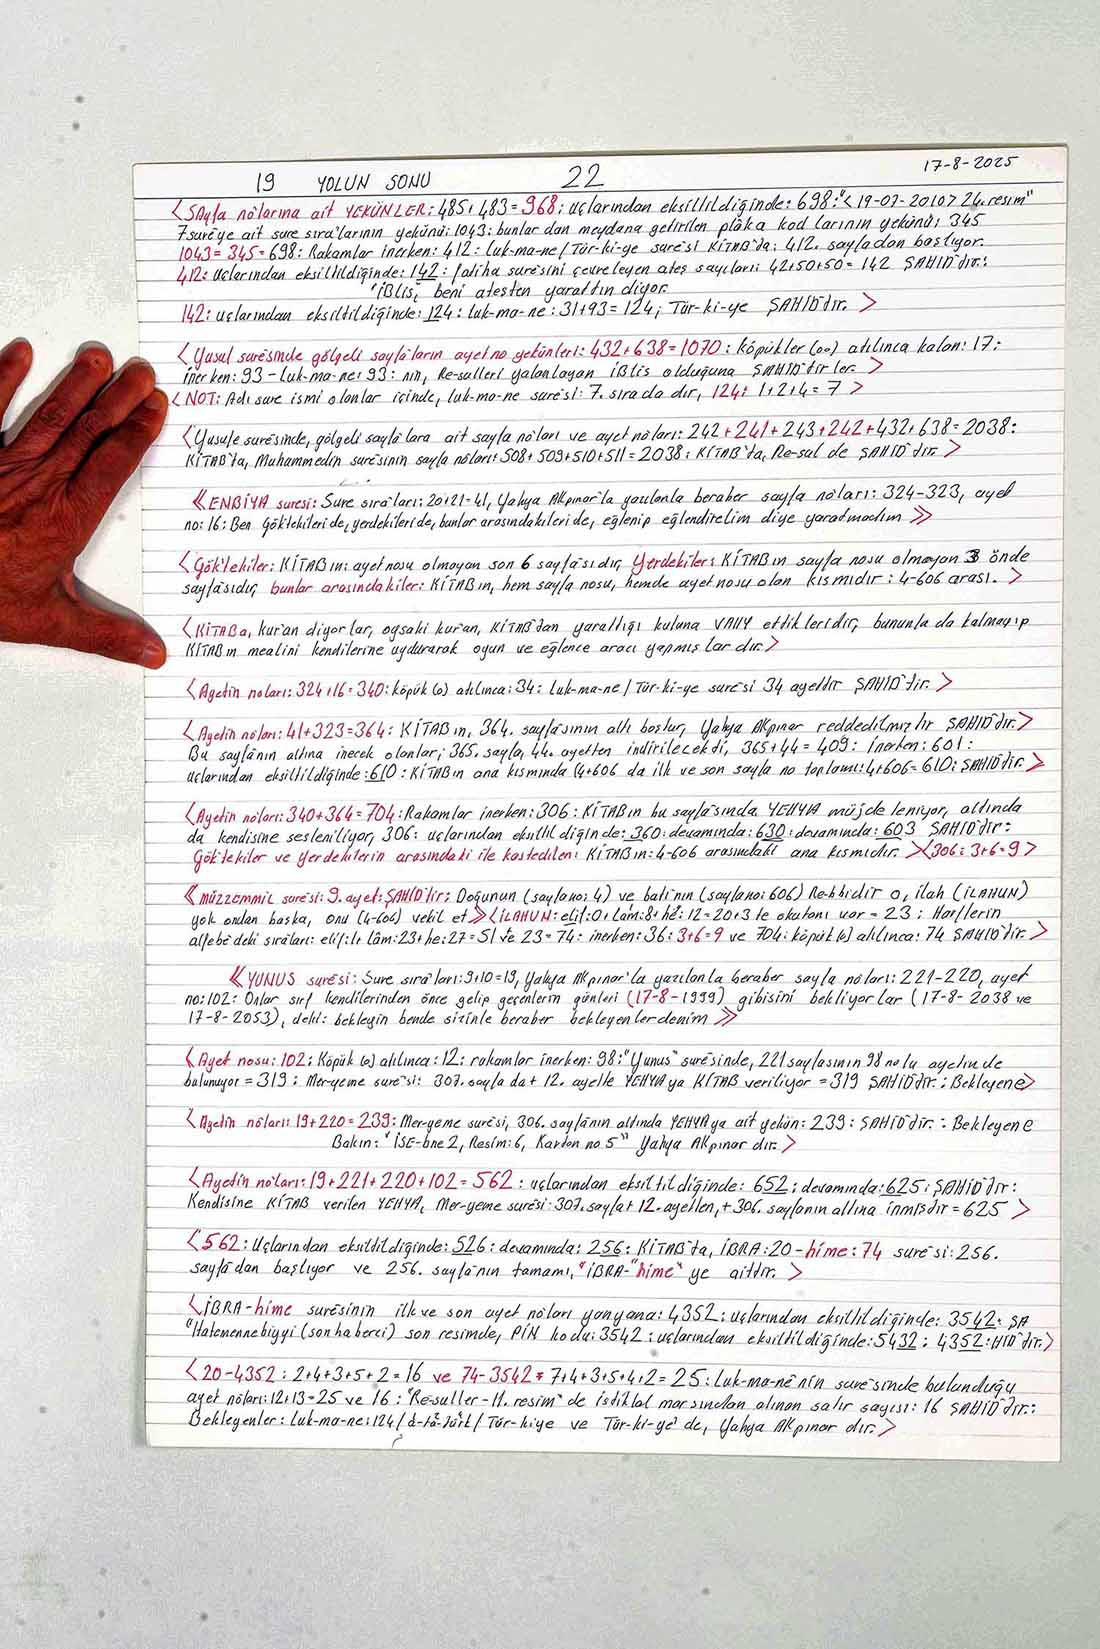 17-8-2025
19 YOLUN SONU 22
<SAyfa nolarına ait YEKÜNLER: 485+483=968; uçlarından eksiltildiğinde: 698:"<19-07-2010> 24. resim"
7 sureye ait sure sıra'larının yekünü: 1043: bunlar dan meydana getirilen plâka kod larının yekünü: 345
1043=345=698: Rakamlar inerken: 412: Luk-ma-ne/Tür-ki-ye suresi KİTAB'ta: 412. sayfadan başlıyor.
412: uçlarından eksiltildiğinde: 142: fatiha suresini çevreleyen ateş sayıları: 42+50+50=142 ŞAHİD'dır.:
"İBLİS, beni ateşten yarattın diyor.
142: uçlarından eksiltildiğinde: 124: Luk-ma-ne: 31+93=124; Tür-ki-ye ŞAHİD'dır. >
<Yusuf suresinde gölgeli sayfa'ların ayet no yekünleri: 432+638=1070: köpükler (00) atılınca kalan: 17:
inerken: 93-Luk-ma-ne: 93: nın, Re-sulleri yalanlayan İBLİS olduğuna ŞAHİD'tirler. >
<NOT: Adı sure ismi olanlar içinde, luk-mo-ne suresi: 7. sırada dır, 124: 1+2+4=7 >
<Yusufe suresinde, gölgeli sayfa'lara ait sayfa no'ları ve ayet no'ları: 242+241+243+242+432+638=2038:
KİTAB'ta, Muhammedin suresinin sayfa no'ları: 508+509+510+511=2038: KİTAB'ta, Re-sul de ŞAHİD'tir. >
<<ENBİYA suresi: Sure sıra'ları: 20+21=41, Yahya AKpınar'la yazılanla beraber sayfa no'ları: 324-323, ayet
no: 16: Ben Göktekileri de, yerdekileri de, bunlar arasındakileri de, eğlenip eğlendirelim diye yaratmadım >>
<Göktekiler: KİTABın: ayet nosu olmayan son 6 sayfa'sıdır, Yerdekiler: KİTABın sayfa nosu olmayan 3 önde
sayfa'sıdır, bunlar arasındakiler: KİTABın, hem sayfa nosu, hemde ayet nosu olan kısmıdır: 4-606 arası. >
<KİTABa, kur'an diyorlar, oysaki kur'an, KİTAB'dan yarattığı kuluna VAHY ettikleridir, bununla da kalmayıp
KİTABın mealini kendilerine uydurarak oyun ve eğlence aracı yapmışlar dır. >
<Ayetin no'ları: 324+16=340: köpük (0) atılınca: 34: Luk-ma-ne/Tür-ki-ye suresi 34 ayettir ŞAHİD'tir. >
<Ayetin no'ları: 41+323=364: KİTABın, 364. sayfa'sının altı boştur, Yahya AKpınar reddedilmiştir ŞAHİD'tir. >
Bu sayfa'nın altına inecek olanlar; 365. sayfa, 44. ayetten indirilecekdi, 365+44=409: inerken: 601:
uçlarından eksiltildiğinde: 610: KİTABın ana kısmında (4+606 da ilk ve son sayfa no toplamı: 4+606=610: ŞAHİD'tir. >
<Ayetin no'ları: 340+364=704: Rakamlar inerken: 306: KİTABın bu sayfa'sında YEHYA müjdeleniyor, altında
da kendisine sesleniliyor, 306: uçlarından eksiltildiğinde: 360: devamında: 630: devamında: 603 ŞAHİD'tir:
Göktekiler ve Yerdekilerin arasındaki ile kastedilen: KİTABın: 4-606 arasındaki ana kısmıdır. ><306: 3+6=9>
<<MÜZZEMMİL suresi: 9. ayet: ŞAHİD'tir: Doğunun (sayfa no: 4) ve batı'nın (sayfa no: 606) Re-bbidir o, ilah (İLAHUN)
yok ondan başka, onu (4-606) vekil et >> <İLAHUN: elif: 0+Lâm: 8+he: 12=20+3 te okutanı var=23: Harflerin
alfebe'deki sıra'ları: elif: 1+lâm: 23+he: 27=51 ve 23=74: inerken: 36: 3+6=9 ve 704: köpük (0) atılınca: 74 ŞAHİD'tir. >
<<YUNUS suresi: Sure sıra'ları: 9+10=19, Yahya AKpınar'la yazılanla beraber sayfa no'ları: 221-220, ayet
no: 102: Onlar sırf kendilerinden önce gelip geçenlerin günleri (17-8-1999) gibisini bekliyorlar (17-8-2038 ve
17-8-2053), deki: bekleyin bende sizinle beraber bekleyenlerdenim >>
<Ayet nosu: 102: Köpük (0) atılınca: 12: rakamlar inerken: 98: "Yunus" suresinde, 221 sayfasının 98 nolu ayetinde
bulunuyor=319: Mer-yeme suresi: 307. sayfa da+12. ayette YEHYA'ya KİTAB veriliyor=319 ŞAHİD'dir.: Bekleyene>
<Ayetin no'ları: 19+220=239: Mer-yeme suresi, 306. sayfa'nın altında YEHYA'ya ait yekün: 239: ŞAHİD'dir.: Bekleyene
Bakın: "İSE-bne 2, Resim: 6, Karton no 5" Yahya AKpınar dır. >
<Ayetin no'ları: 19+221+220+102=562: uçlarından eksiltildiğinde: 652: devamında: 625: ŞAHİD'tir:
Kendisine KİTAB verilen YEHYA, Mer-yeme suresi: 307. sayfa+12. ayetten, +306. sayfanın altına inmişdir=625 >
<562: Uçlarından eksiltildiğinde: 526: devamında: 256: KİTAB'ta, İBRA: 20-hime: 74 suresi: 256.
sayfa'dan başlıyor ve 256. sayfa'nın tamamı, "İBRA-"hime" ye aittir. >
<İBRA-hime suresinin ilk ve son ayet no'ları yanyana: 4352: uçlarından eksiltildiğinde: 3542: ŞA
"Hatemennebiyyi (son haberci) son resimde, PİN kodu: 3542: uçlarından eksiltildiğinde: 5432: 4352: HİD'tir. >
<20-4352: 2+4+3+5+2=16 ve 74-3542=7+4+3+5+4+2=25: Luk-ma-ne'nin suresinde bulunduğu
ayet no'ları: 12+13=25 ve 16: "Re-suller-11. resim" de istiklal marşından alınan satır sayısı: 16 ŞAHİD'tir.:
Bekleyenler: Luk-ma-ne: 124/a-ta-türk/Tür-kiye ve Tür-ki-ye' de, Yahya AKpınar dır. >